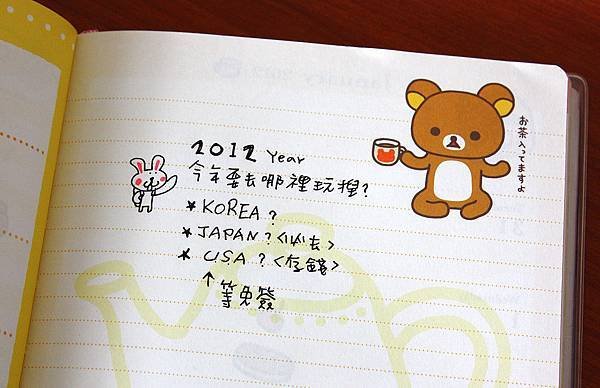 2012 Year
今年要去哪裡玩捏?
*KOREA?
*JAPAN?<必去>
* USA?<存錢>
↑
等免簽
お茶入ってますよ